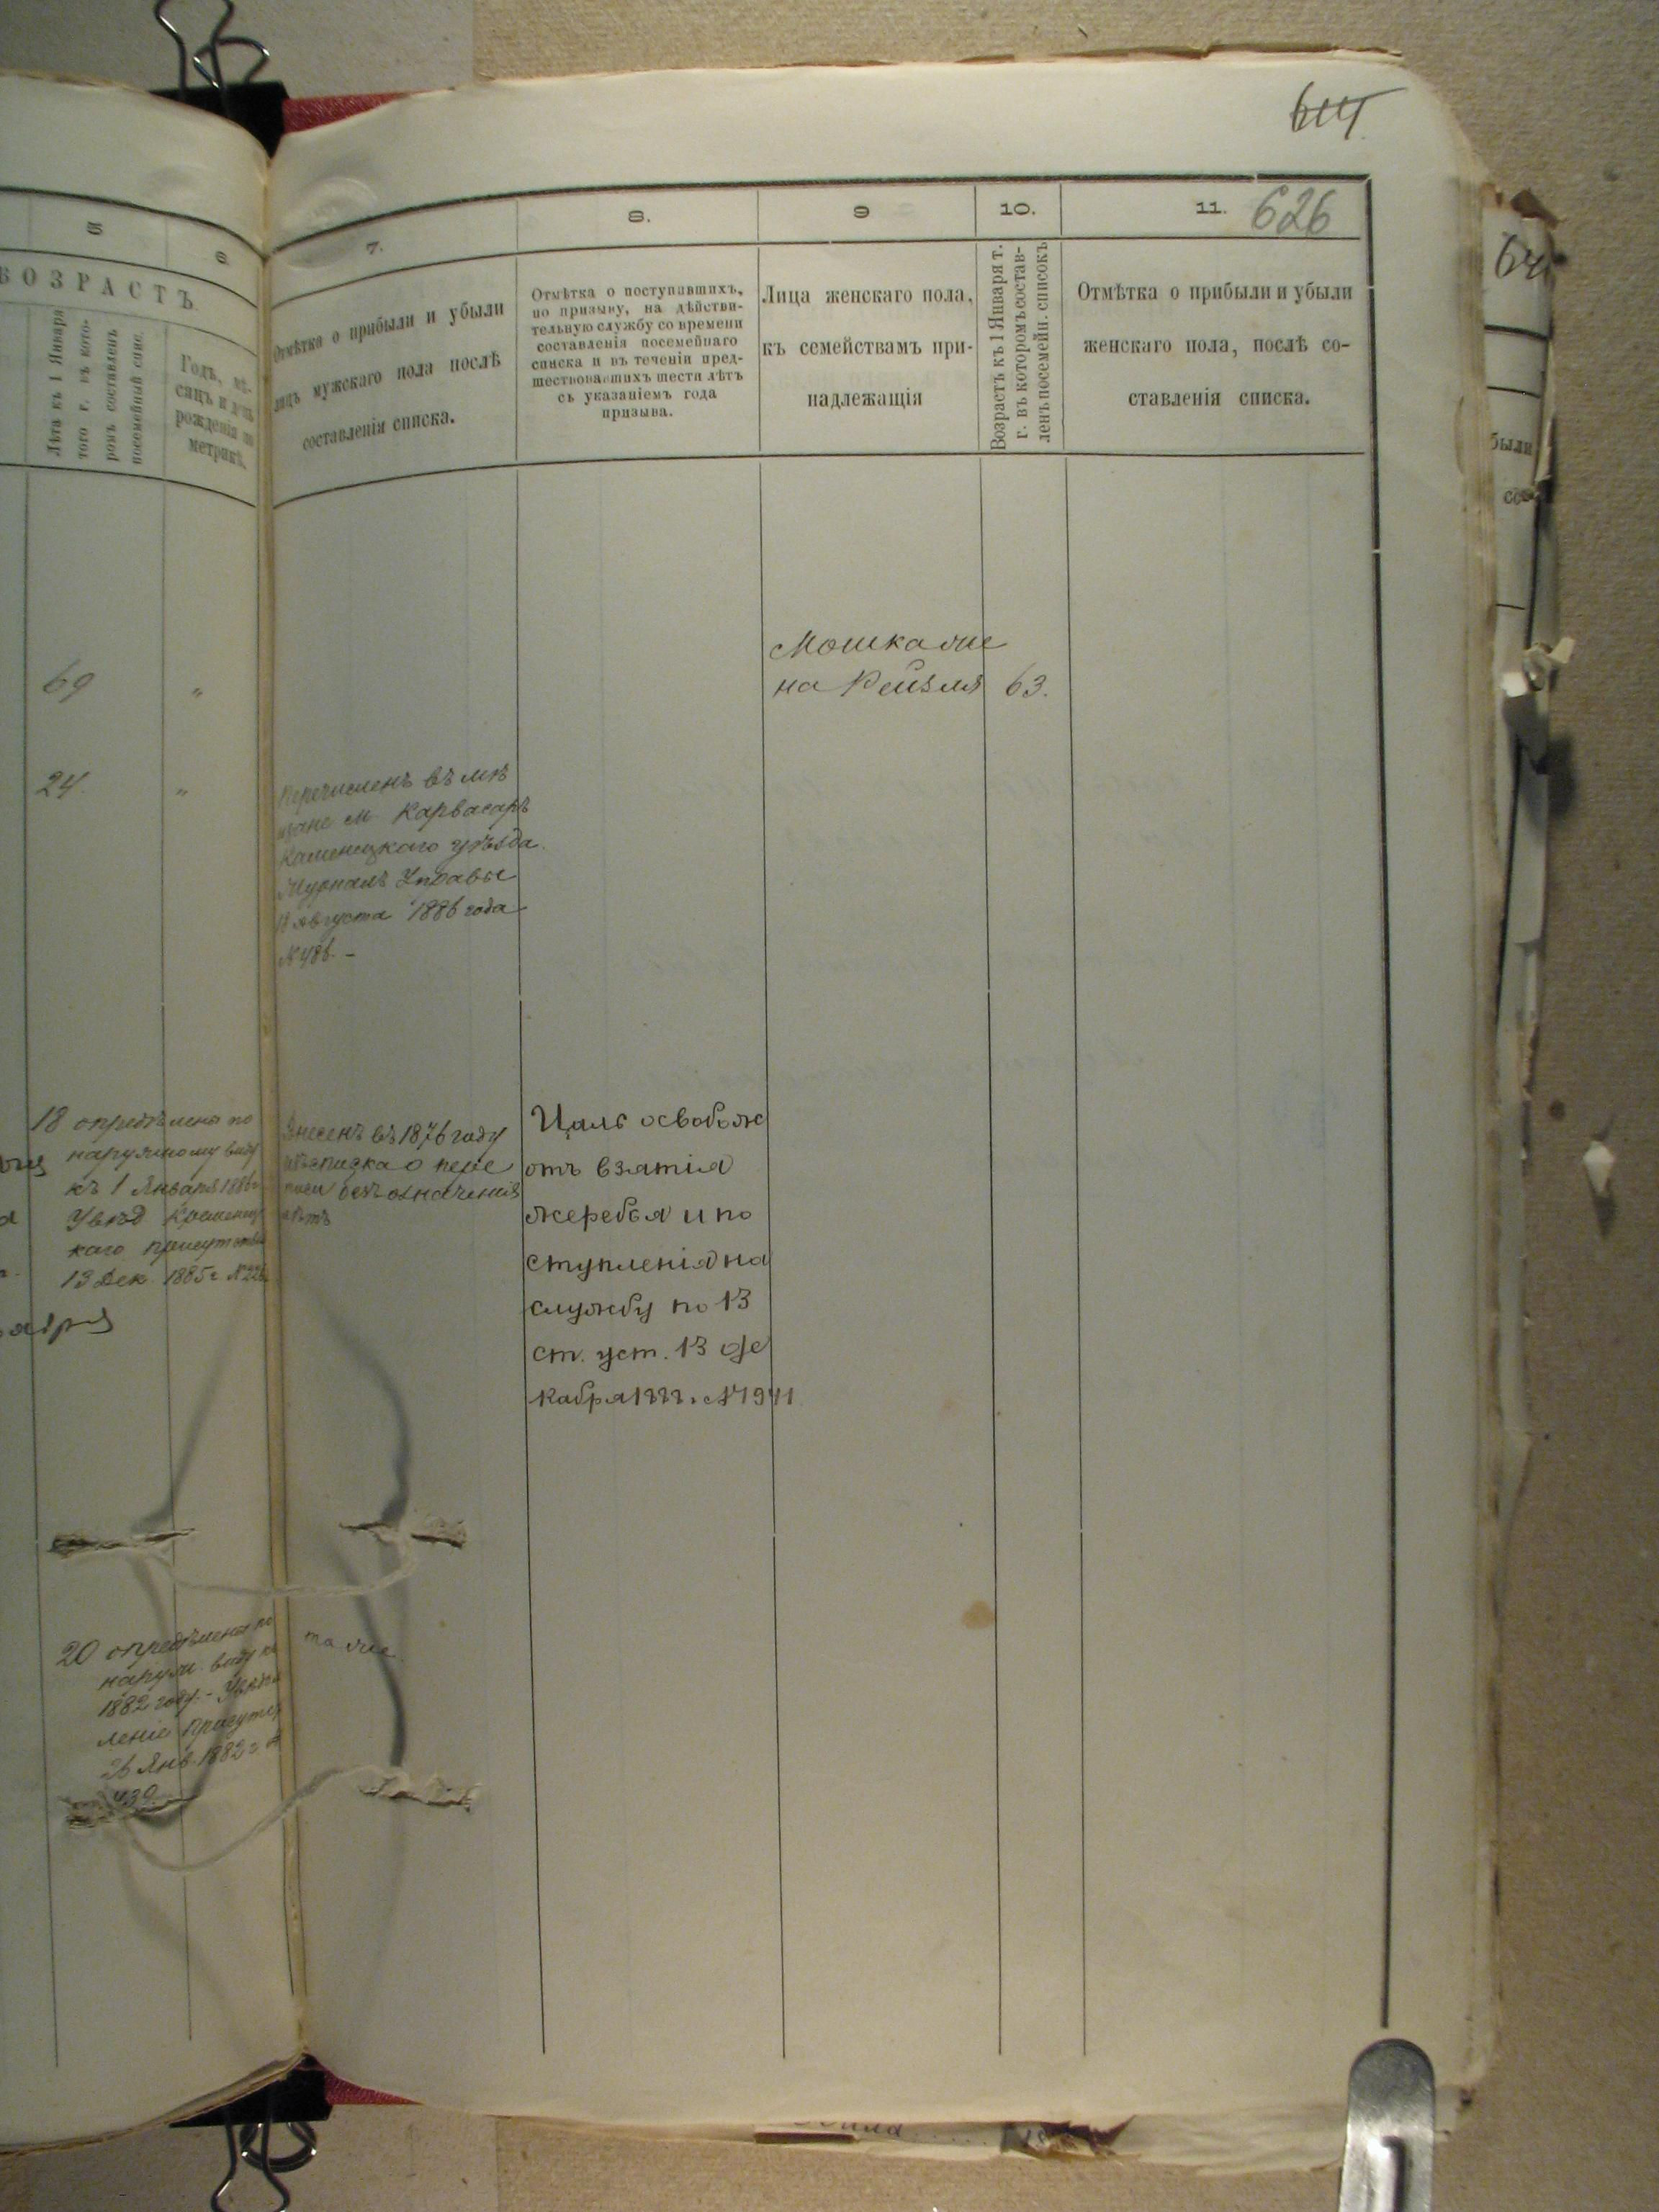 614
626
5
6.
7.
8.
9
10.
11.
ВОЗРАСТЪ
Лѣта къ 1 Января
того г. въ кото-
ромъ составленъ
посемейный спис.
Годъ, мѣ-
сяцъ и день
рожденія по
метрикѣ.
Отмѣтка о прибыли и убыли
лицъ мужскаго пола послѣ
составленія списка.
Отмѣтка о поступавшихъ,
по призыву, на дѣйстви-
тельную службу со времени
составленія посемейнаго
списка и въ теченіи пред-
шествовавшихъ шести лѣтъ
съ указаніемъ года
призыва.
Лица женскаго пола,
къ семействамъ при-
надлежащія
Возрастъ къ 1 Января т.
г. въ которомъ состав-
ленъ посемейн. списокъ
Отмѣтка о прибыли и убыли
женскаго пола, послѣ со-
ставленія списка.
Мошка же
на Рейзля 63.
69 "
24 "
Перечисленъ въ мѣ
щане м. Карвасаръ
Каменецкаго уѣзда
Журналъ Управы
Августа 1886 года
№ 486. -
18 опредѣлено по
наружному виду
къ 1 Января 1886
Уѣзд
каго присутствія
13 Дек. 1885 г. №
Внесенъ въ 1876 году
списка о пере
писи безъ означенія
лѣтъ
Цаль освобож
отъ взятія
жеребья и по
ступленія на
службу по 13
ст. уст. 13 Де
кабря 1888 г. № 1941
20 опредѣлено по
наруж. виду къ
1882 году. -
леніе Присутст
26 Янв. 1882 г. №
439.
тоже